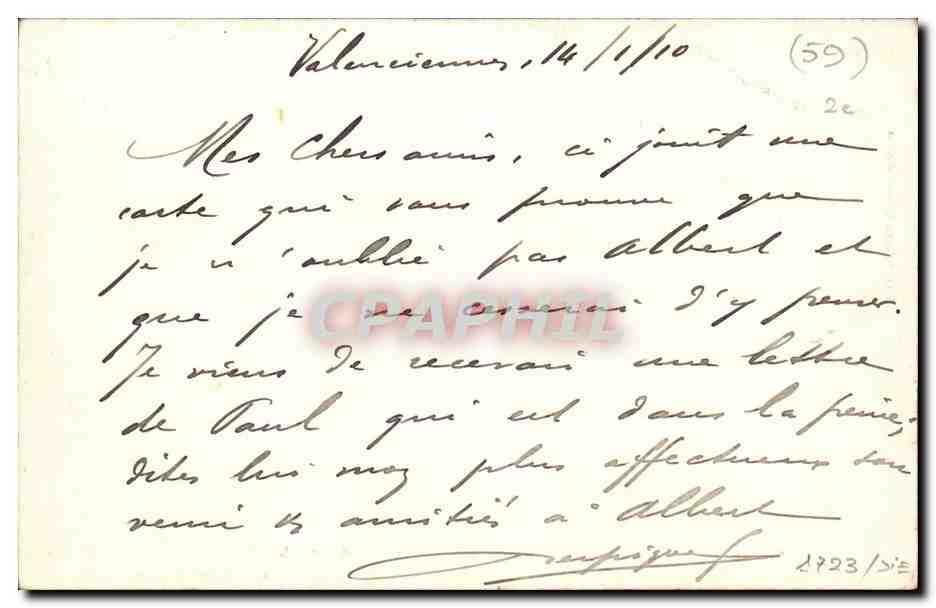 Valenciennes, 14/1/10
(59)
2e
Mes chers amis, ci joint une
carte qui vous prouve que
je n'oublie pas Albert et
que je ne cesserai d'y penser.
CPAPHIL
Je viens de recevoir une lettre
de Paul qui est dans la peine,
dites lui mes plus affectueux sou
venir & amitiés à Albert
1723/